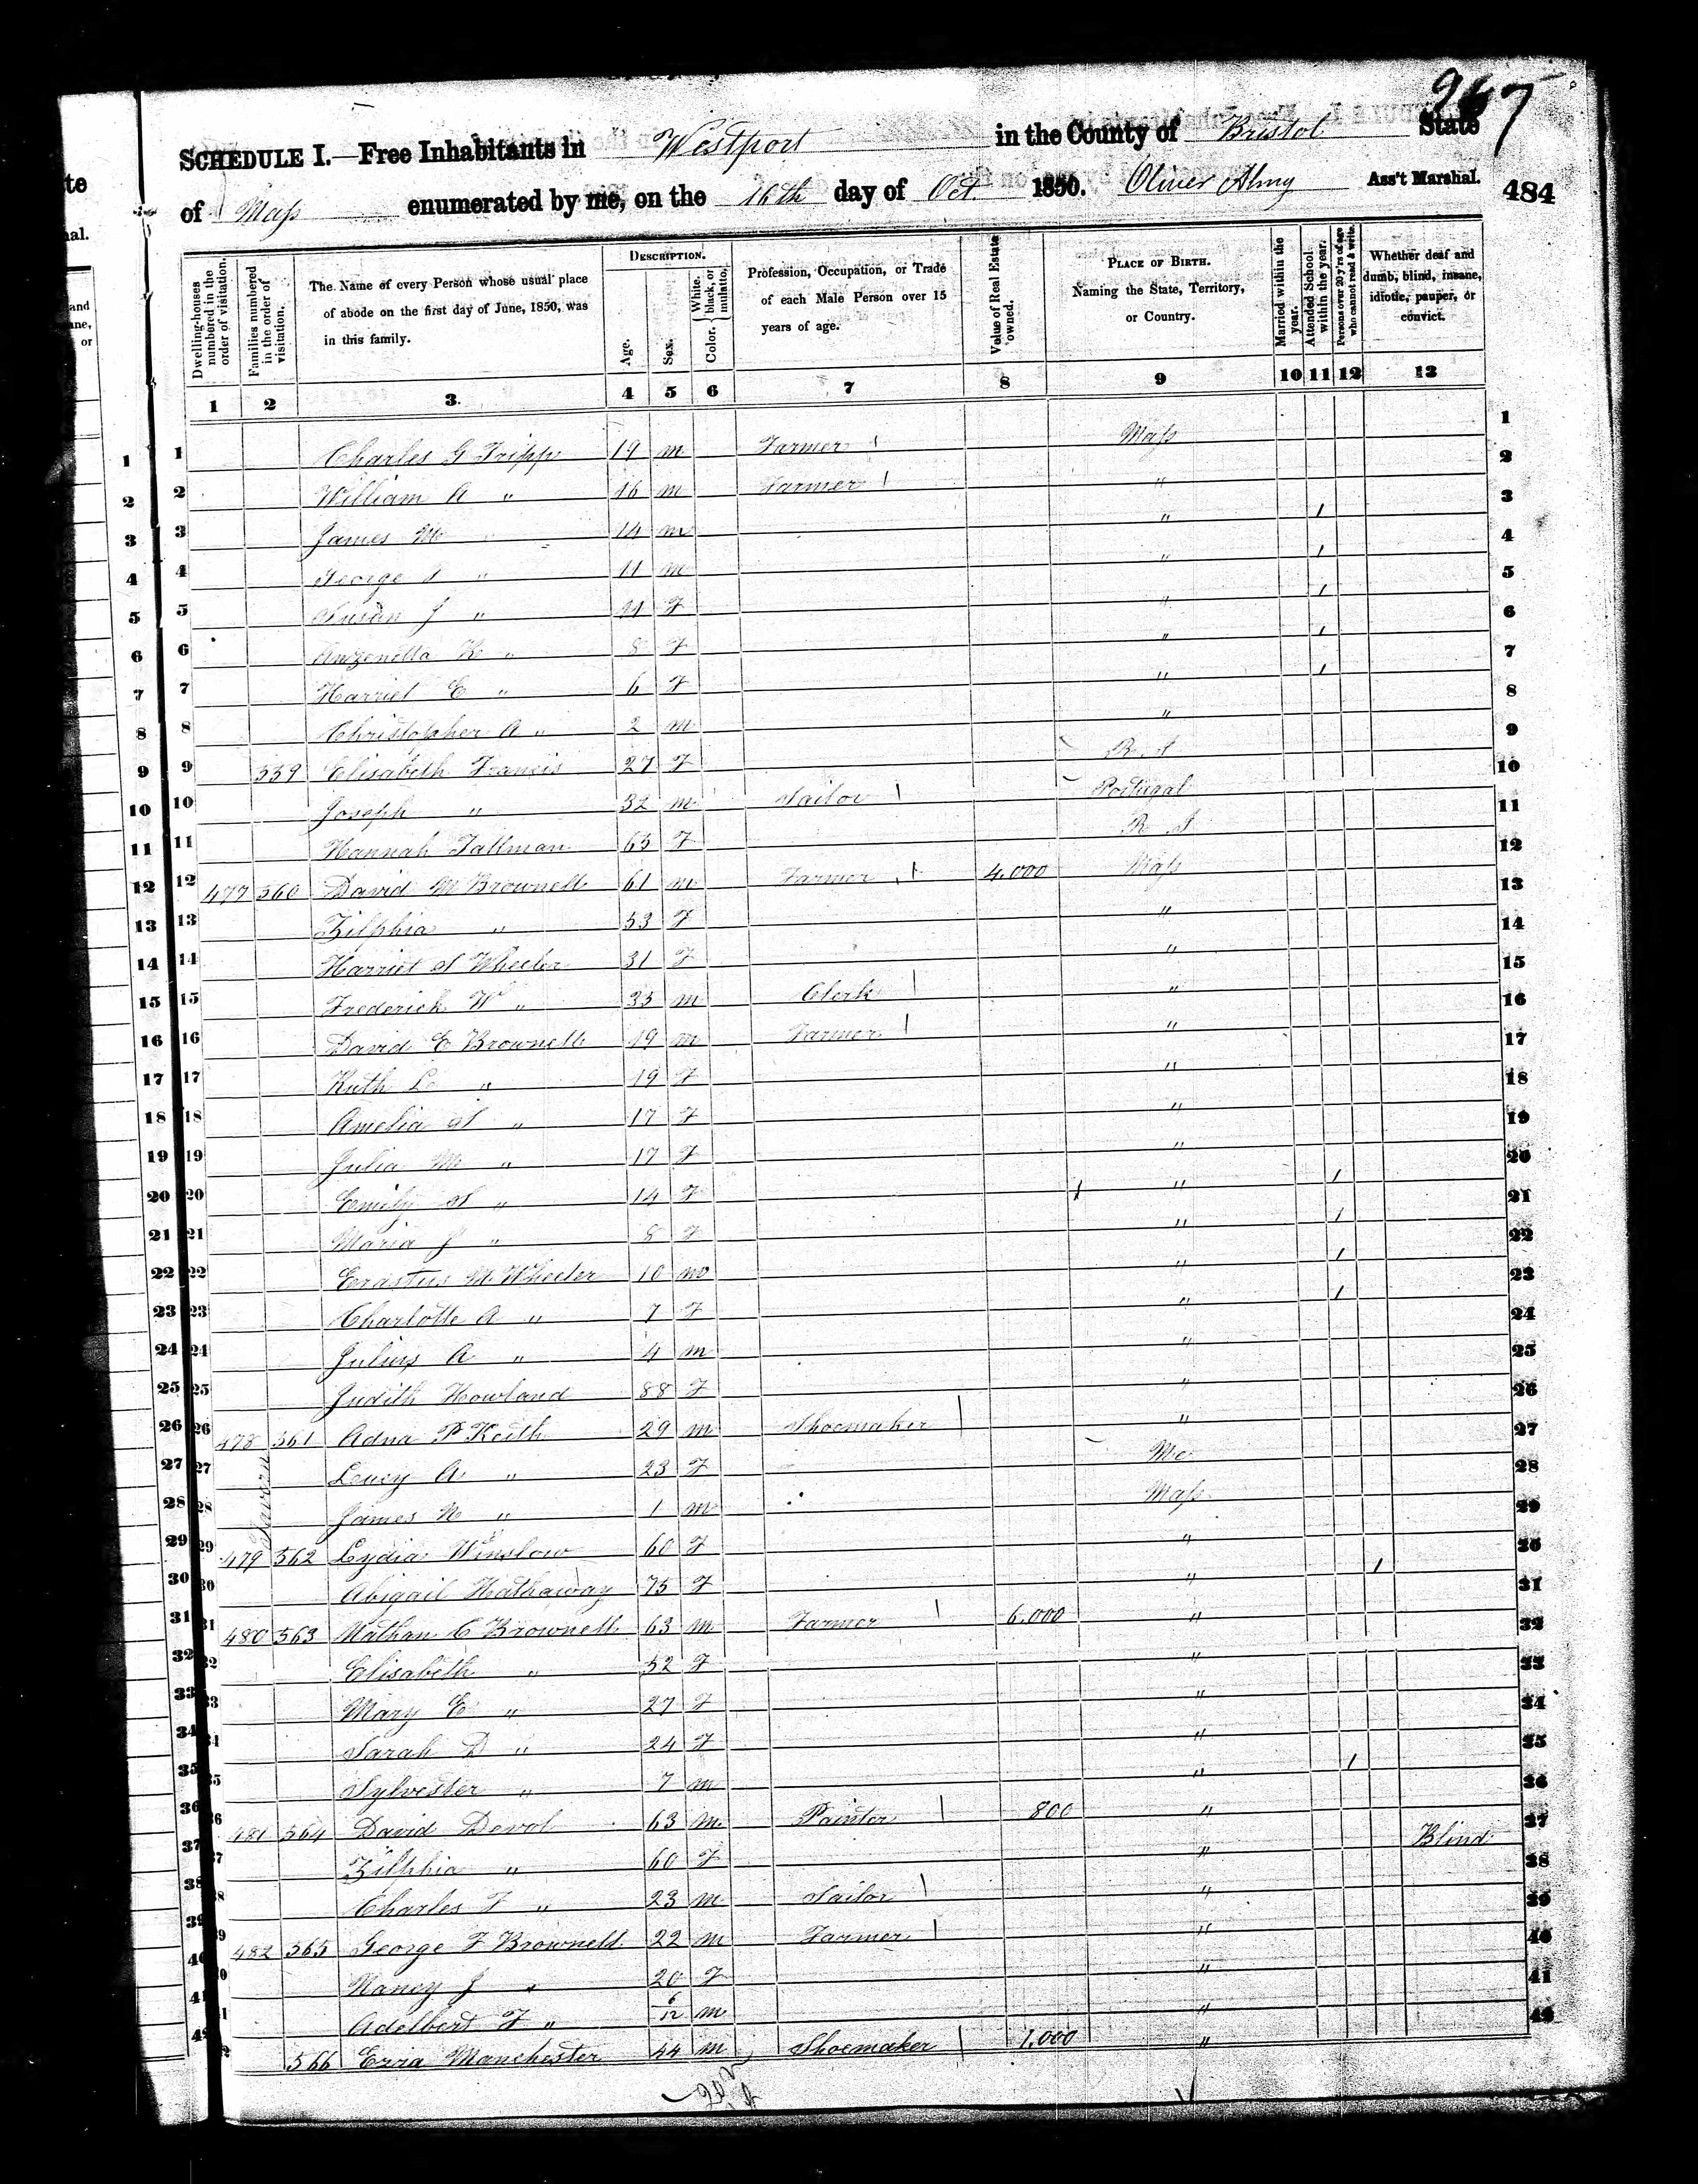 267
SCHEDULE I.—Free Inhabitants in Westport in the County of Bristol State
of Mass enumerated by me, on the 16th day of Oct. 1850. Oliver Almy Ass't Marshal. 484
Dwelling-houses numbered in the order of visitation.
Families numbered in the order of visitation.
The Name of every Person whose usual place of abode on the first day of June, 1850, was in this family.
DESCRIPTION.
Age.
Sex.
Color. { White, black, or mulatto.
Profession, Occupation, or Trade of each Male Person over 15 years of age.
Value of Real Estate owned.
PLACE OF BIRTH. Naming the State, Territory, or Country.
Married within the year.
Attended School within the year.
Persons over 20 y'rs of age who cannot read & write.
Whether deaf and dumb, blind, insane, idiotic, pauper, or convict.
1 2 3. 4 5 6 7 8 9 10 11 12 13
1 Charles G Tripp 19 m Farmer Mass 1
2 William A " 16 m Farmer " 2
3 James M " 14 m " 1 3
4 George " 11 m " 1 4
5 Susan J " 11 F " 1 5
6 K " 8 F " 1 6
7 Harriet E " 6 F " 1 7
8 Christopher A " 2 m " 8
9 559 Elisabeth Francis 27 F R. I 9
10 Joseph " 32 m Sailor Portugal 10
11 Hannah Tallman 65 F R. I 11
12 477 560 David M Brownell 61 m Farmer 4,000 Mass 12
13 Zilphia " 53 F " 13
14 Harriet S Wheeler 31 F " 14
15 Frederick W " 33 m Clerk " 15
16 David E Brownell 19 m Farmer " 16
17 Ruth L " 19 F " 17
18 Amelia S " 17 F " 18
19 Julia M " 17 F " 19
20 Emily S " 14 F " 1 20
21 Maria J " 8 F " 1 21
22 Erastus M Wheeler 10 m " 1 22
23 Charlotte A " 7 F " 1 23
24 Julius A " 4 m " 24
25 Judith Howland 88 F " 25
26 478 561 Adna P Keith 29 m Shoemaker " 26
27 Lucy A " 23 F Me 27
28 James N " 1 m Mass 28
Tavern
29 479 562 Lydia Winslow 60 F " 29
30 Abigail Hathaway 75 F " 1 30
31 480 563 Nathan C Brownell 63 m Farmer 6,000 " 31
32 Elisabeth " 52 F " 32
33 Mary E " 27 F " 33
34 Sarah D " 24 F " 34
35 Sylvester " 7 m " 1 35
36 481 564 David Devol 63 m Painter 800 " 36
37 Zilphia " 60 F " Blind 37
38 Charles F " 23 m Sailor " 38
39 482 565 George F Brownell 22 m Farmer " 39
40 Nancy J " 20 F " 40
41 Adelbert F " 6/12 m " 41
42 566 Ezra Manchester 44 m Shoemaker 1,000 " 42